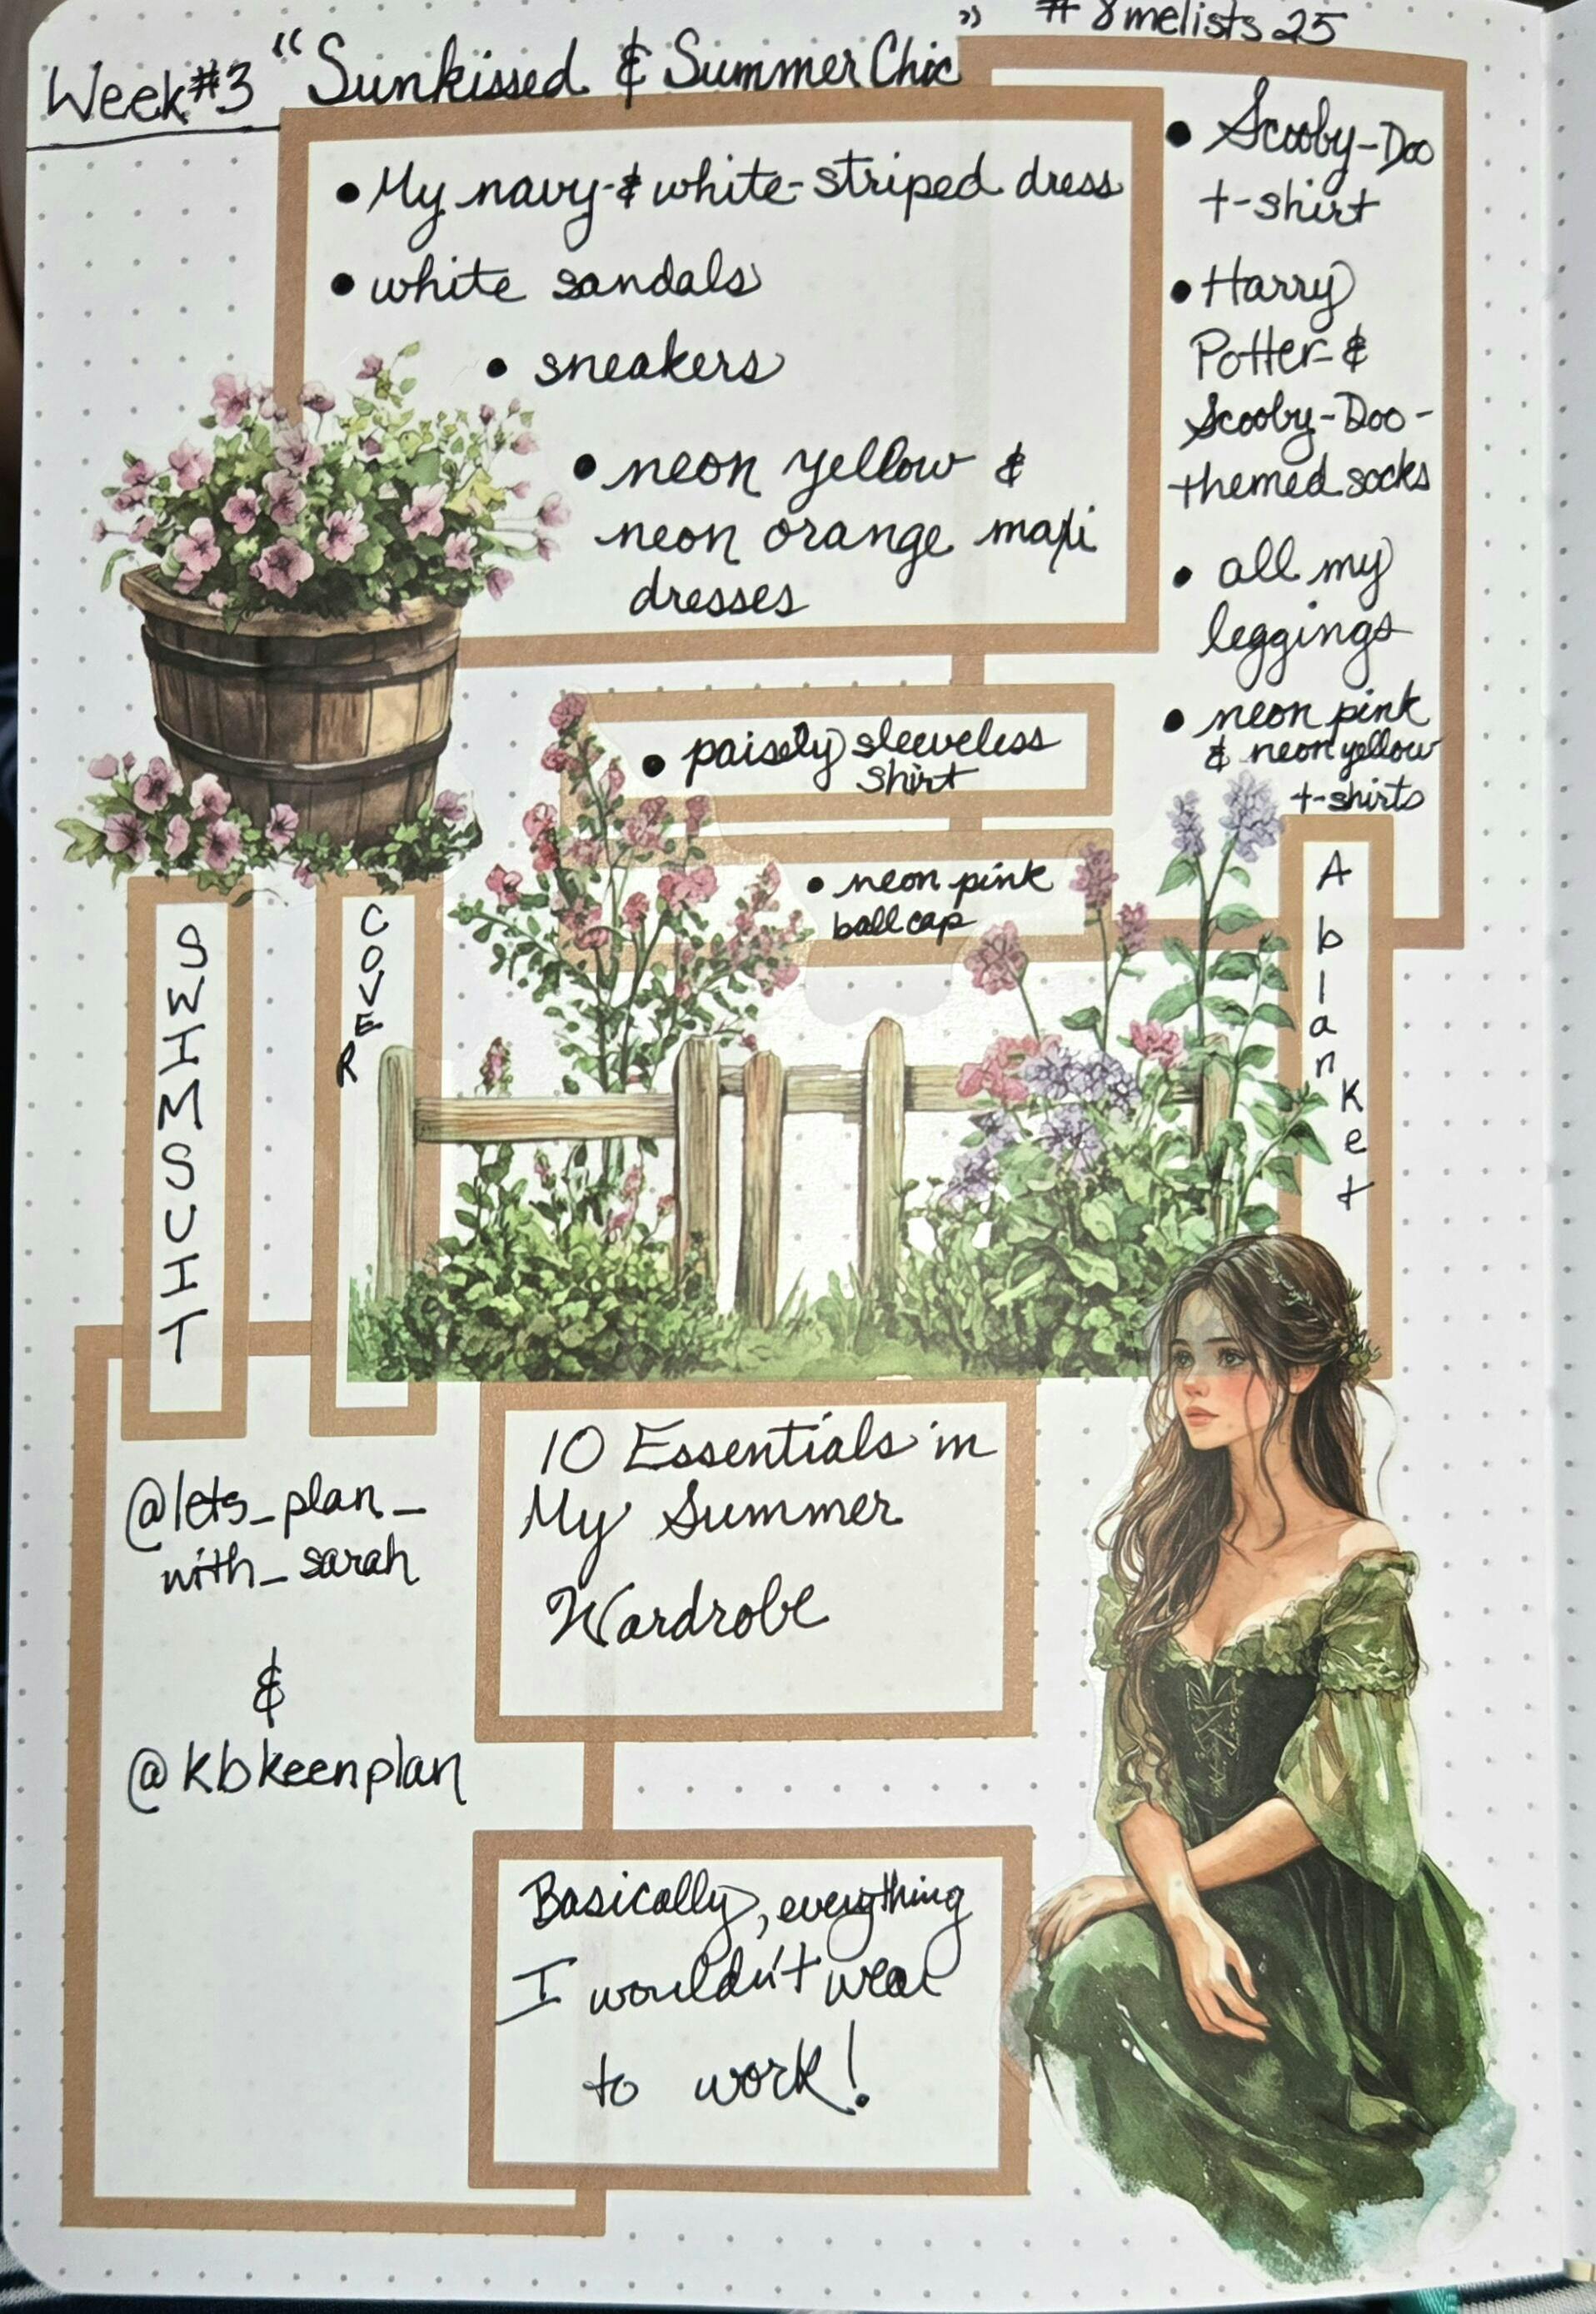 Week #3 "Sunkissed & Summer Chic" #8melists25
• My navy-& white-striped dress
• white sandals
• sneakers
• neon yellow &
neon orange maxi
dresses
• Scooby-Doo
t-shirt
• Harry
Potter- &
Scooby-Doo-
themed socks
• all my
leggings
• neon pink
& neon yellow
t-shirts
• paisely sleeveless
shirt
• neon pink
ball cap
SWIMSUIT
COVER
A blanket
@lets_plan_
with_sarah
&
@kbkeenplan
10 Essentials in
My Summer
Wardrobe
Basically, everything
I wouldn't wear
to work!